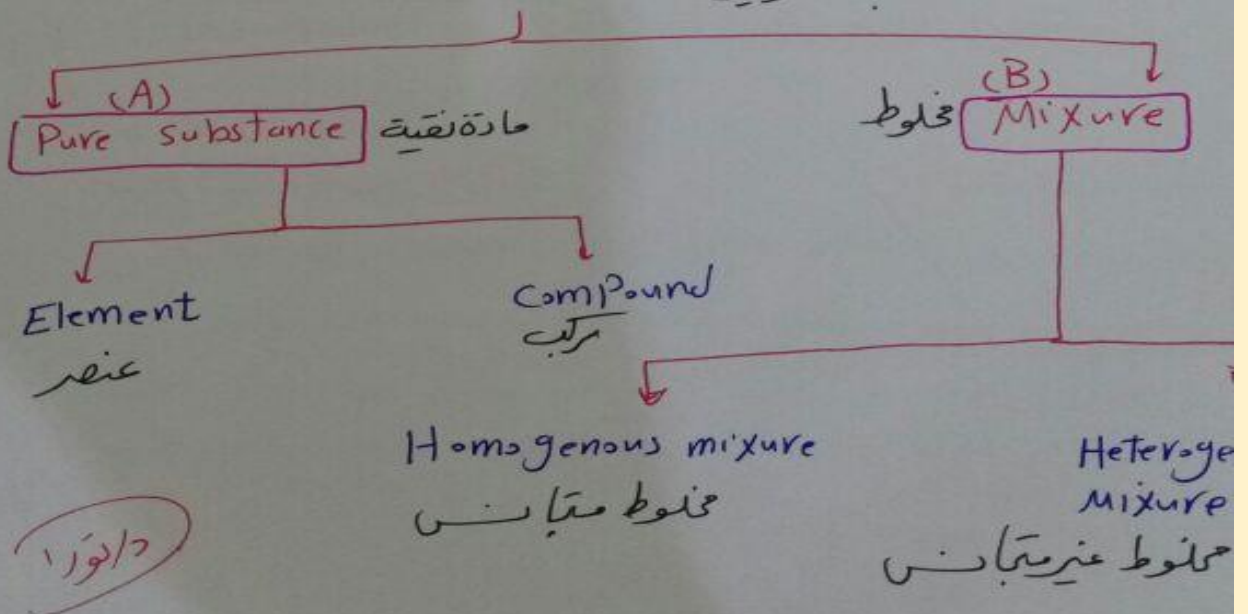 (A)
Pure substance مادة نقية
(B)
مخلوط Mixure
Element
عنصر
Compound
مركب
Homogenous mixure
مخلوط متجانس
Heteroge
Mixure
مخلوط غير متجانس